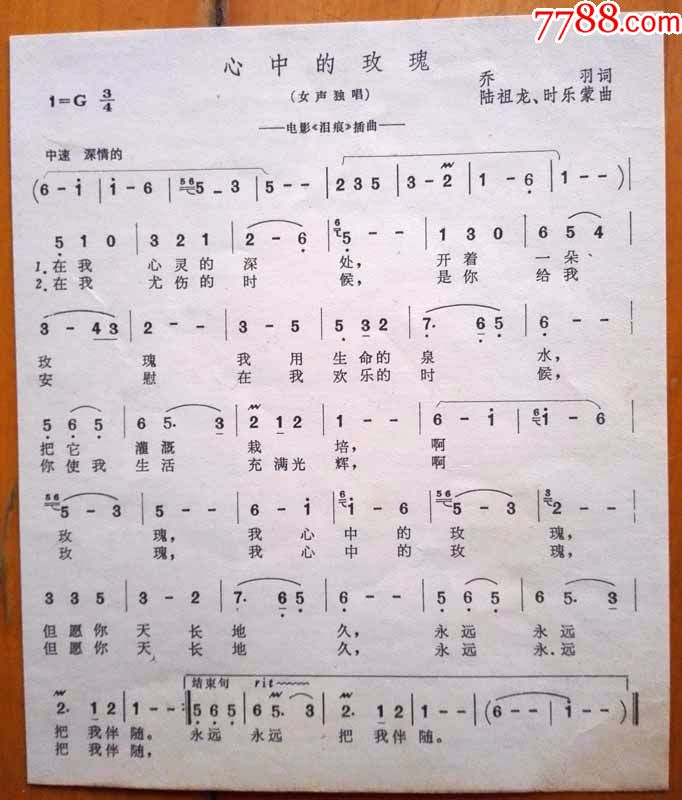 7788.com
中国收藏热线
心中的玫瑰
1=G 3/4
(女声独唱)
乔 羽词
陆祖龙、时乐蒙曲
——电影《泪痕》插曲——
中速 深情的
(6 - i | i - 6 | 56 5 - 3 | 5 - - | 2 3 5 | 3 - 2 | 1 - 6 | 1 - - )
5 1 0 | 3 2 1 | 2 - 6 | 6 5 - - | 1 3 0 | 6 5 4
1.在我 心灵的 深 处, 开着 一朵
2.在我 尤伤的 时 候, 是你 给我
3 - 4 3 | 2 - - | 3 - 5 | 5 3 2 | 7. 6 5 | 6 - -
玫 瑰 我 用 生命的 泉 水,
安 慰 在 我 欢乐的 时 候,
5 6 5 | 6 5. 3 | 2 1 2 | 1 - - | 6 - i | 6 i - 6
把它 灌溉 栽 培, 啊
你使我 生活 充满光 辉, 啊
56 5 - 3 | 5 - - | 6 - i | 6 i - 6 | 56 5 - 3 | 3 2 - -
玫 瑰, 我 心 中 的 玫 瑰,
玫 瑰, 我 心 中 的 玫 瑰,
3 3 5 | 3 - 2 | 7. 6 5 | 6 - - | 5 6 5 | 6 5. 3
但愿你 天 长 地 久, 永远 永远
但愿你 天 长 地 久, 永远 永远
结束句 rit
2. 1 2 | 1 - - :‖ 5 6 5 | 6 5. 3 | 2. 1 2 | 1 - - | (6 - - | i - - )‖
把 我伴 随。 永远 永远 把 我伴 随。
把 我伴 随,